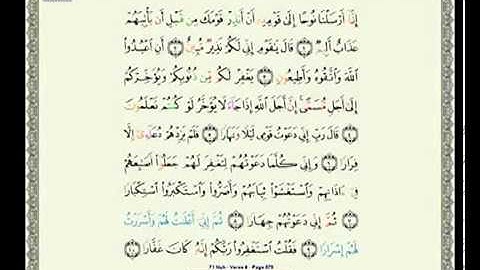 إِنَّا أَرْسَلْنَا نُوحًا إِلَىٰ قَوْمِهِ أَنْ أَنذِرْ قَوْمَكَ مِن قَبْلِ أَن يَأْتِيَهُمْ
عَذَابٌ أَلِيمٌ ١ قَالَ يَٰقَوْمِ إِنِّي لَكُمْ نَذِيرٌ مُّبِينٌ ٢ أَنِ ٱعْبُدُوا۟
ٱللَّهَ وَٱتَّقُوهُ وَأَطِيعُونِ ٣ يَغْفِرْ لَكُم مِّن ذُنُوبِكُمْ وَيُؤَخِّرْكُمْ
إِلَىٰٓ أَجَلٍ مُّسَمًّى إِنَّ أَجَلَ ٱللَّهِ إِذَا جَآءَ لَا يُؤَخَّرُ لَوْ كُنتُمْ تَعْلَمُونَ
٤ قَالَ رَبِّ إِنِّي دَعَوْتُ قَوْمِي لَيْلًا وَنَهَارًا ٥ فَلَمْ يَزِدْهُمْ دُعَآءِيٓ إِلَّا
فِرَارًا ٦ وَإِنِّي كُلَّمَا دَعَوْتُهُمْ لِتَغْفِرَ لَهُمْ جَعَلُوٓا۟ أَصَٰبِعَهُمْ
فِيٓ ءَاذَانِهِمْ وَٱسْتَغْشَوْا۟ ثِيَابَهُمْ وَأَصَرُّوا۟ وَٱسْتَكْبَرُوا۟ ٱسْتِكْبَارًا
٧ ثُمَّ إِنِّي دَعَوْتُهُمْ جِهَارًا ٨ ثُمَّ إِنِّيٓ أَعْلَنتُ لَهُمْ وَأَسْرَرْتُ
لَهُمْ إِسْرَارًا ٩ فَقُلْتُ ٱسْتَغْفِرُوا۟ رَبَّكُمْ إِنَّهُۥ كَانَ غَفَّارًا ١٠
71 Nuh - Verse 8 - Page 570